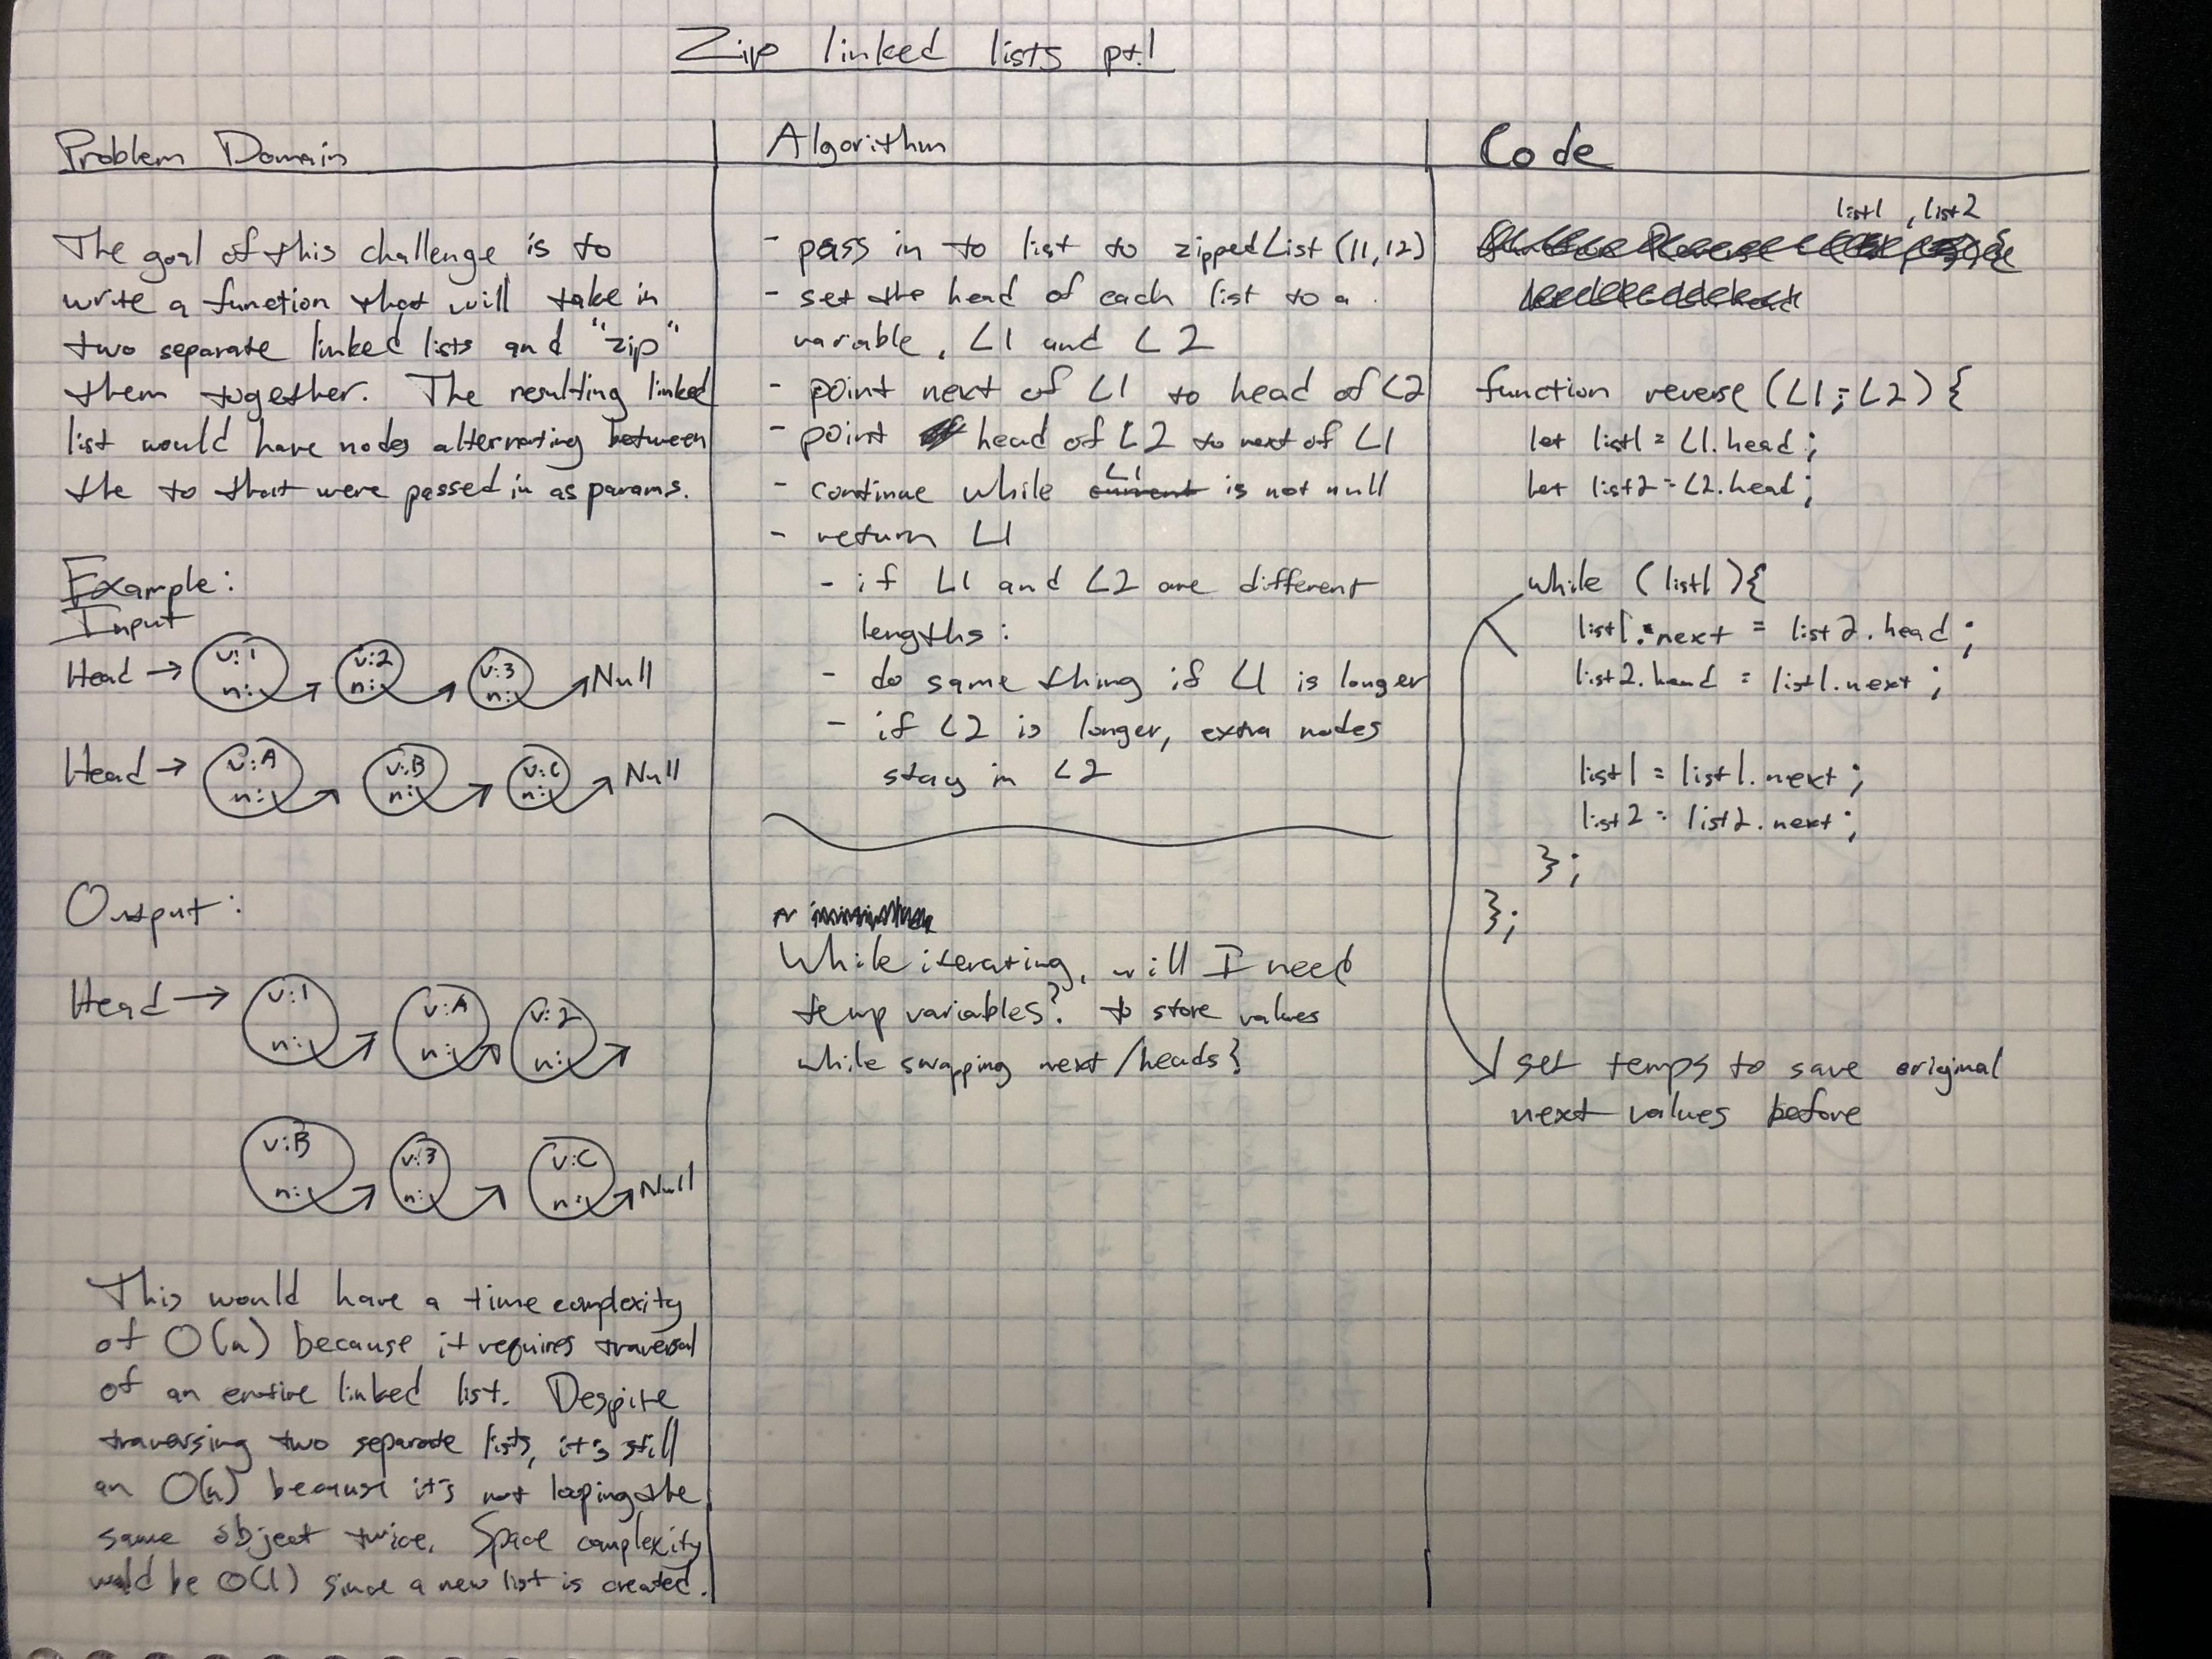 Zip linked lists pt.1
Problem Domain
The goal of this challenge is to
write a function that will take in
two separate linked lists and "zip"
them together. The resulting linked
list would have nodes alternating between
the to that were passed in as params.
Example:
Input
Head → v:1 n: v:2 n: v:3 n: Null
Head → v:A n: v:B n: v:C n: Null
Output:
Head → v:1 n: v:A n: v:2 n:
v:B n: v:3 n: v:C n: Null
This would have a time complexity
of O(n) because it requires traversal
of an entire linked list. Despite
traversing two separate lists, it's still
an O(n) because it's not looping the
same object twice. Space complexity
would be O(1) since a new list is created.
Algorithm
- pass in to list to zippedList (l1, l2)
- set the head of each list to a
variable, L1 and L2
- point next of L1 to head of L2
- point head of L2 to next of L1
- continue while current L1 is not null
- return L1
- if L1 and L2 are different
lengths:
- do same thing if L1 is longer
- if L2 is longer, extra nodes
stay in L2
While iterating, will I need
temp variables? to store values
while swapping next/heads}
Code
list1 , list2
function reverse (L1; L2) {
let list1 = L1.head;
let list2 = L2.head;
while (list1){
list1.next = list2.head;
list2.head = list1.next;
list1 = list1.next;
list2 = list2.next;
};
};
set temps to save original
next values before